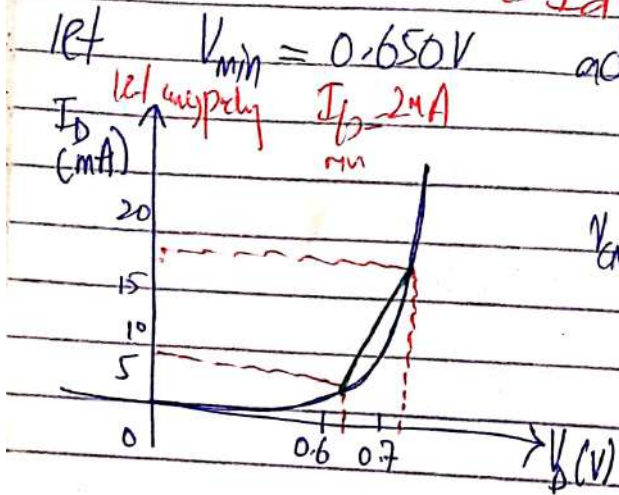 let V_min = 0.650V
let I_D = 2mA
min
I_D
(mA)
20
15
10
5
0
0.6 0.7
V_D (V)